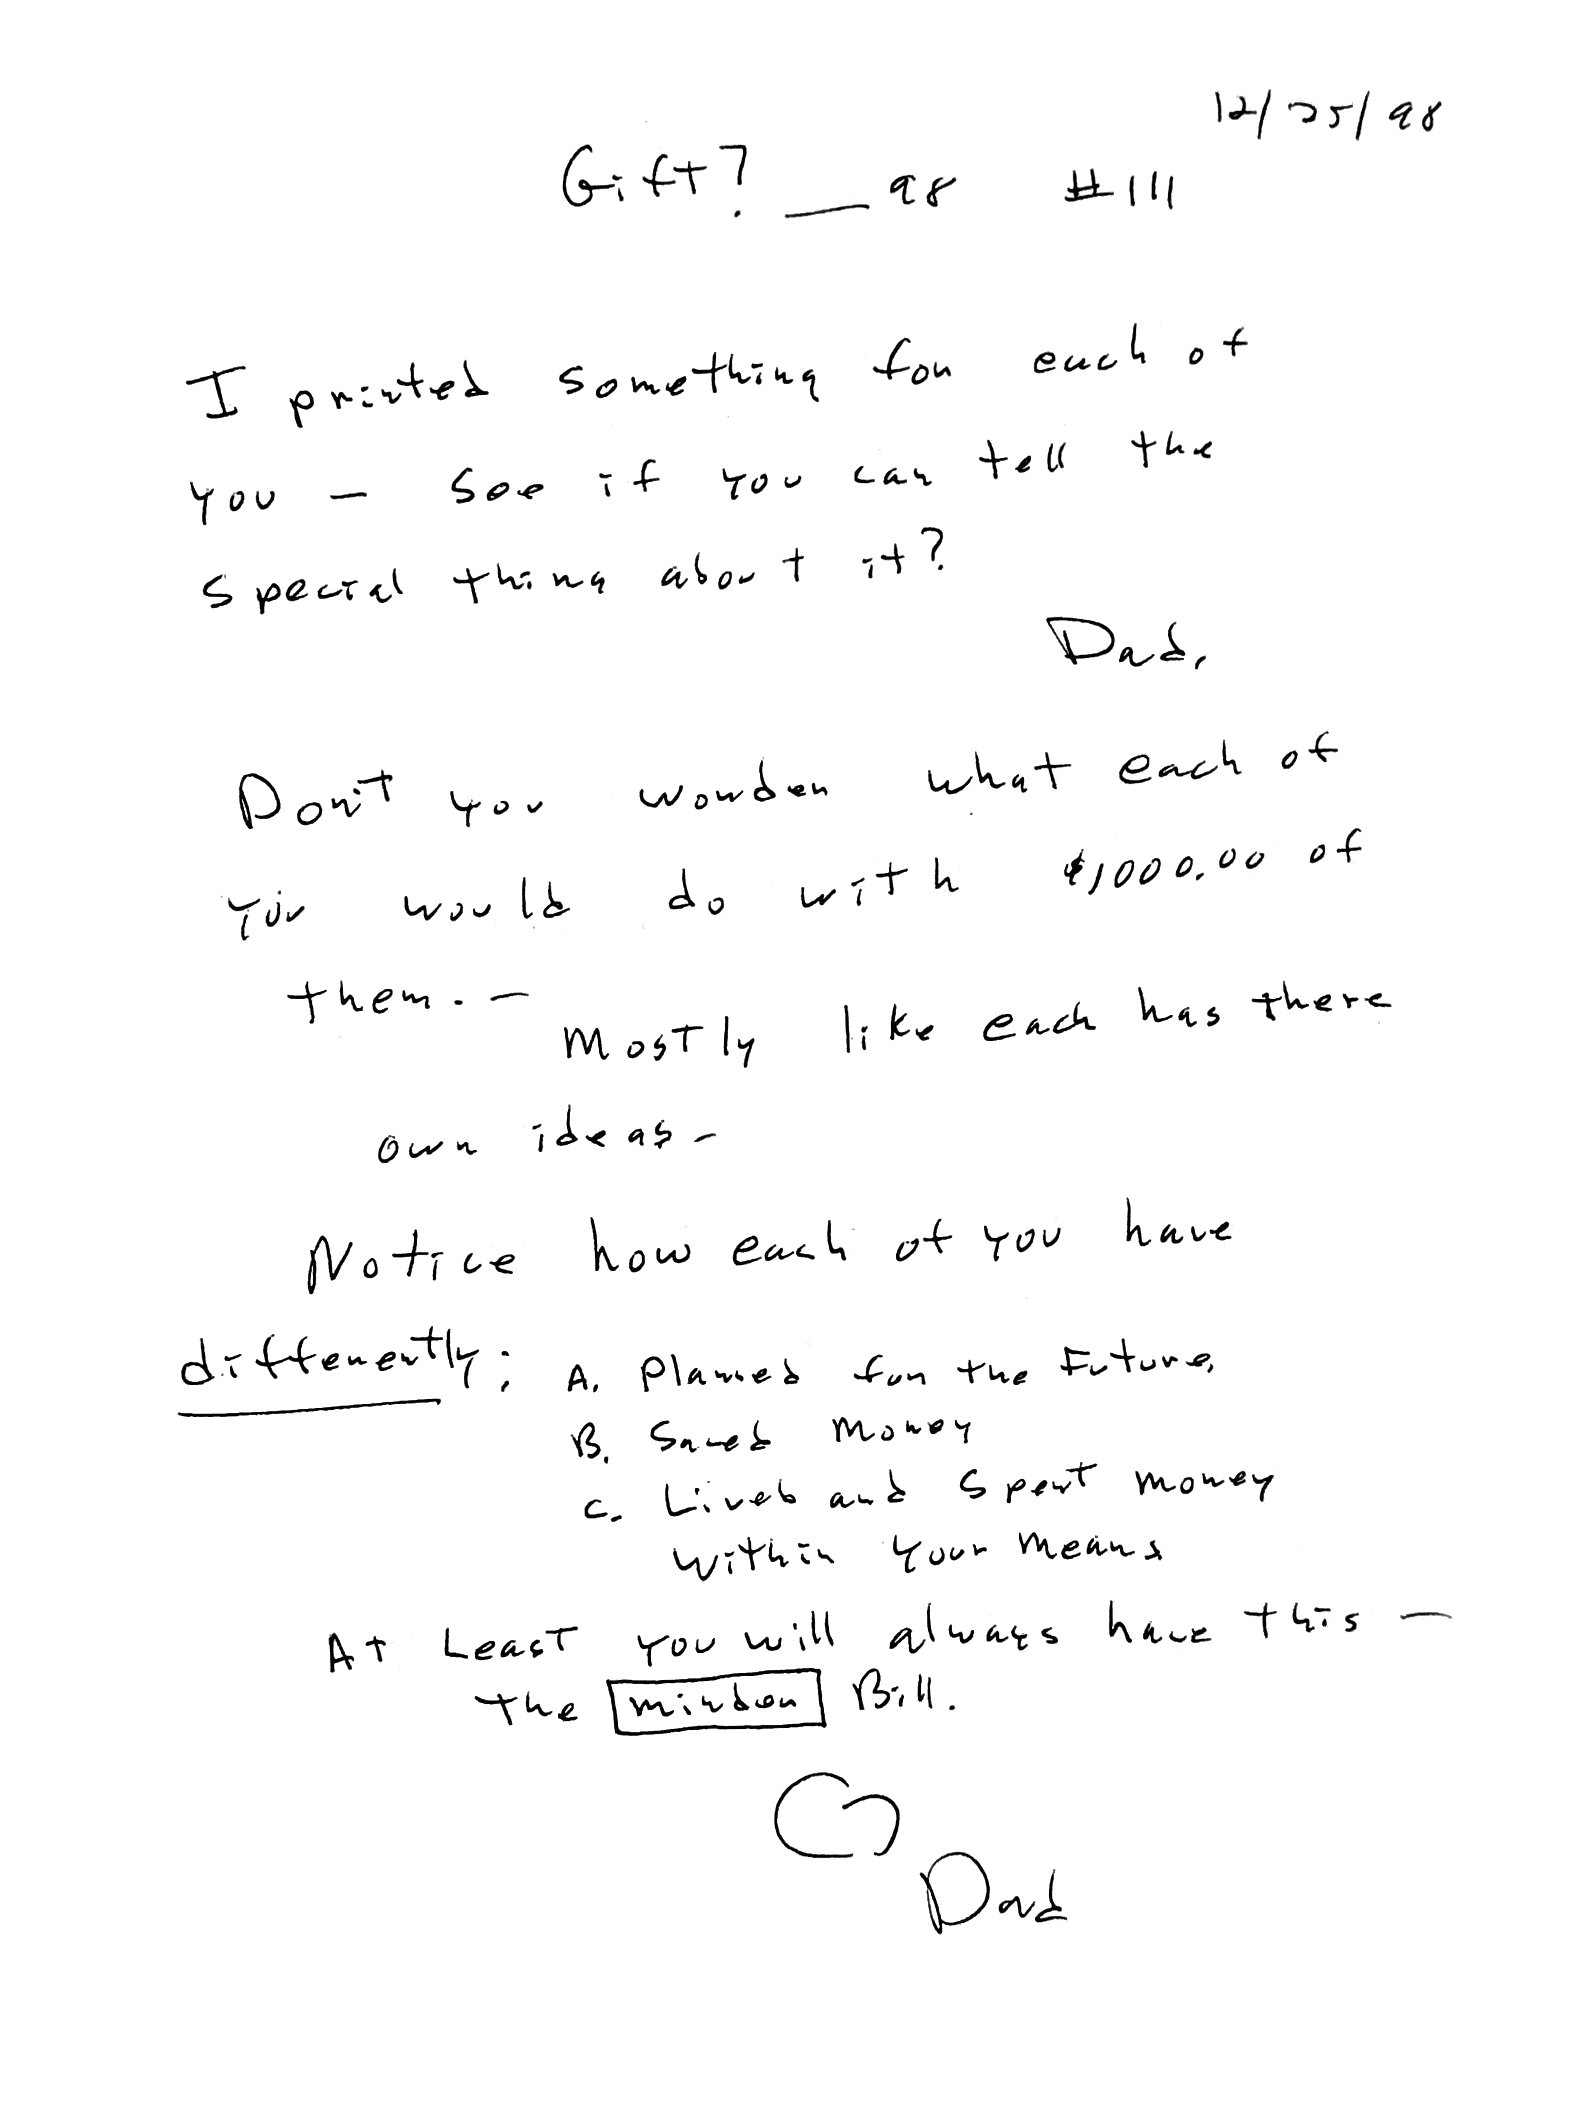 12/25/98
Gift? __ 98 #111
I printed something for each of
you - See if you can tell the
special thing about it?
Dad,
Don't you wonder what each of
you would do with $1000.00 of
them. -
Mostly like each has there
own ideas -
Notice how each of you have
differently; A. Planned for the Future,
B. Saved Money
C. Lived and Spent money
within your means
At Least you will always have this -
the minden Bill.
Dad